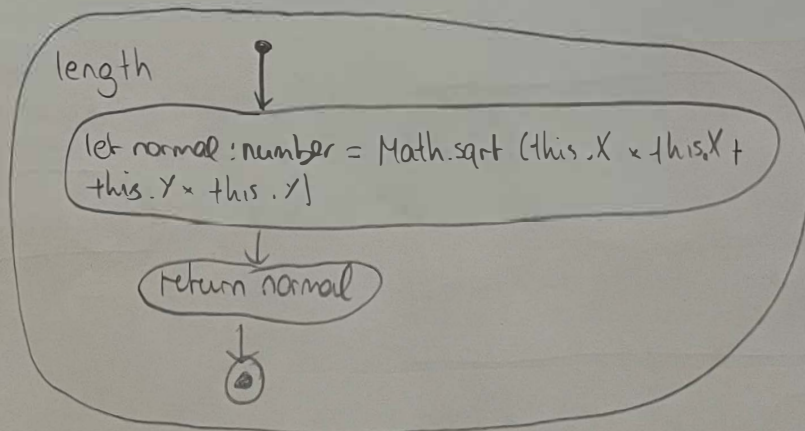 length
let normal:number = Math.sqrt (this.X × this.X +
this.Y × this.Y)
return normal